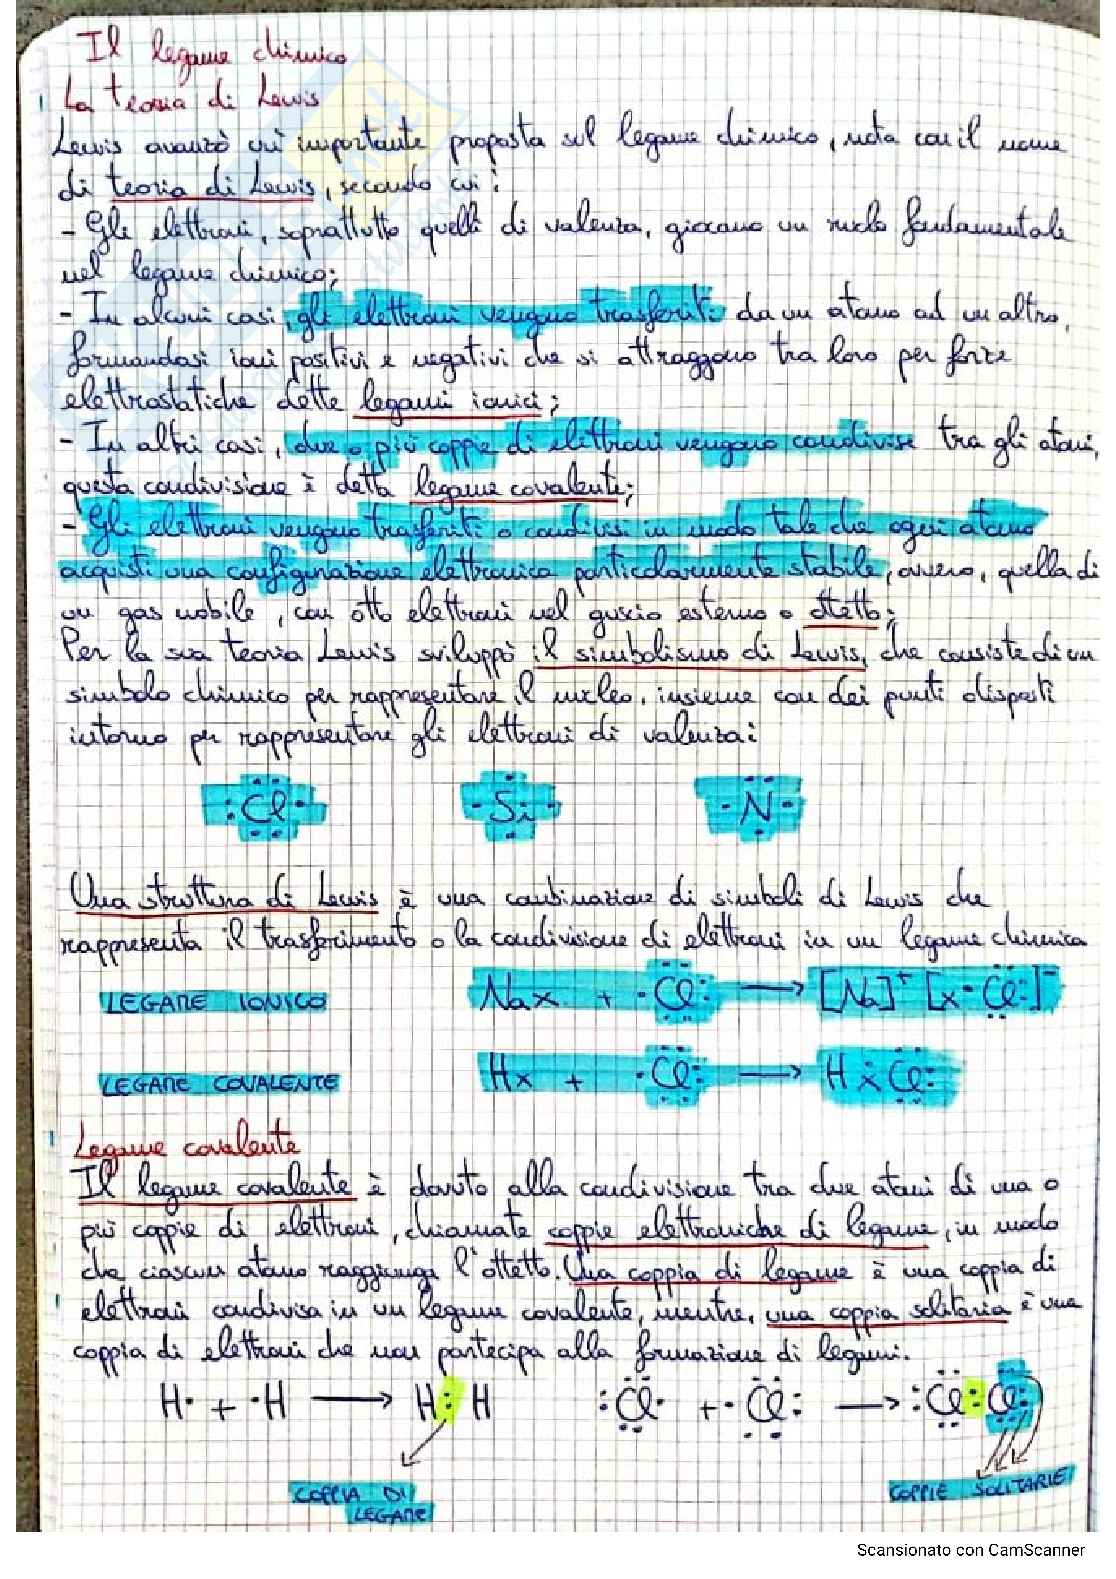 Il legame chimico
La teoria di Lewis
Lewis avanzò un'importante proposta sul legame chimico, nota con il nome
di teoria di Lewis, secondo cui:
- Gli elettroni, soprattutto quelli di valenza, giocano un ruolo fondamentale
nel legame chimico;
- In alcuni casi, gli elettroni vengono trasferiti da un atomo ad un altro,
formandosi ioni positivi e negativi che si attraggono tra loro per forze
elettrostatiche dette legami ionici;
- In altri casi, due o più coppie di elettroni vengono condivise tra gli atomi,
questa condivisione è detta legame covalente;
- Gli elettroni vengono trasferiti o condivisi in modo tale che ogni atomo
acquisti una configurazione elettronica particolarmente stabile, ovvero, quella di
un gas nobile, con otto elettroni nel guscio esterno o ottetto;
Per la sua teoria Lewis sviluppò il simbolismo di Lewis, che consiste di un
simbolo chimico per rappresentare il nucleo, insieme con dei punti disposti
intorno per rappresentare gli elettroni di valenza:
:Cl· ·Si· ·N·
Una struttura di Lewis è una combinazione di simboli di Lewis che
rappresenta il trasferimento o la condivisione di elettroni in un legame chimico
LEGAME IONICO Nax + ·Cl: → [Na]⁺ [x·Cl:]⁻
LEGAME COVALENTE Hx + ·Cl: → H ẋ Cl:
Legame covalente
Il legame covalente è dovuto alla condivisione tra due atomi di una o
più coppie di elettroni, chiamate coppie elettroniche di legame, in modo
che ciascun atomo raggiunga l'ottetto. Una coppia di legame è una coppia di
elettroni condivisa in un legame covalente, mentre, una coppia solitaria è una
coppia di elettroni che non partecipa alla formazione di legami.
H· + ·H → H : H :Cl· + ·Cl: → :Cl:Cl:
COPPIA DI
LEGAME
COPPIE SOLITARIE
Scansionato con CamScanner